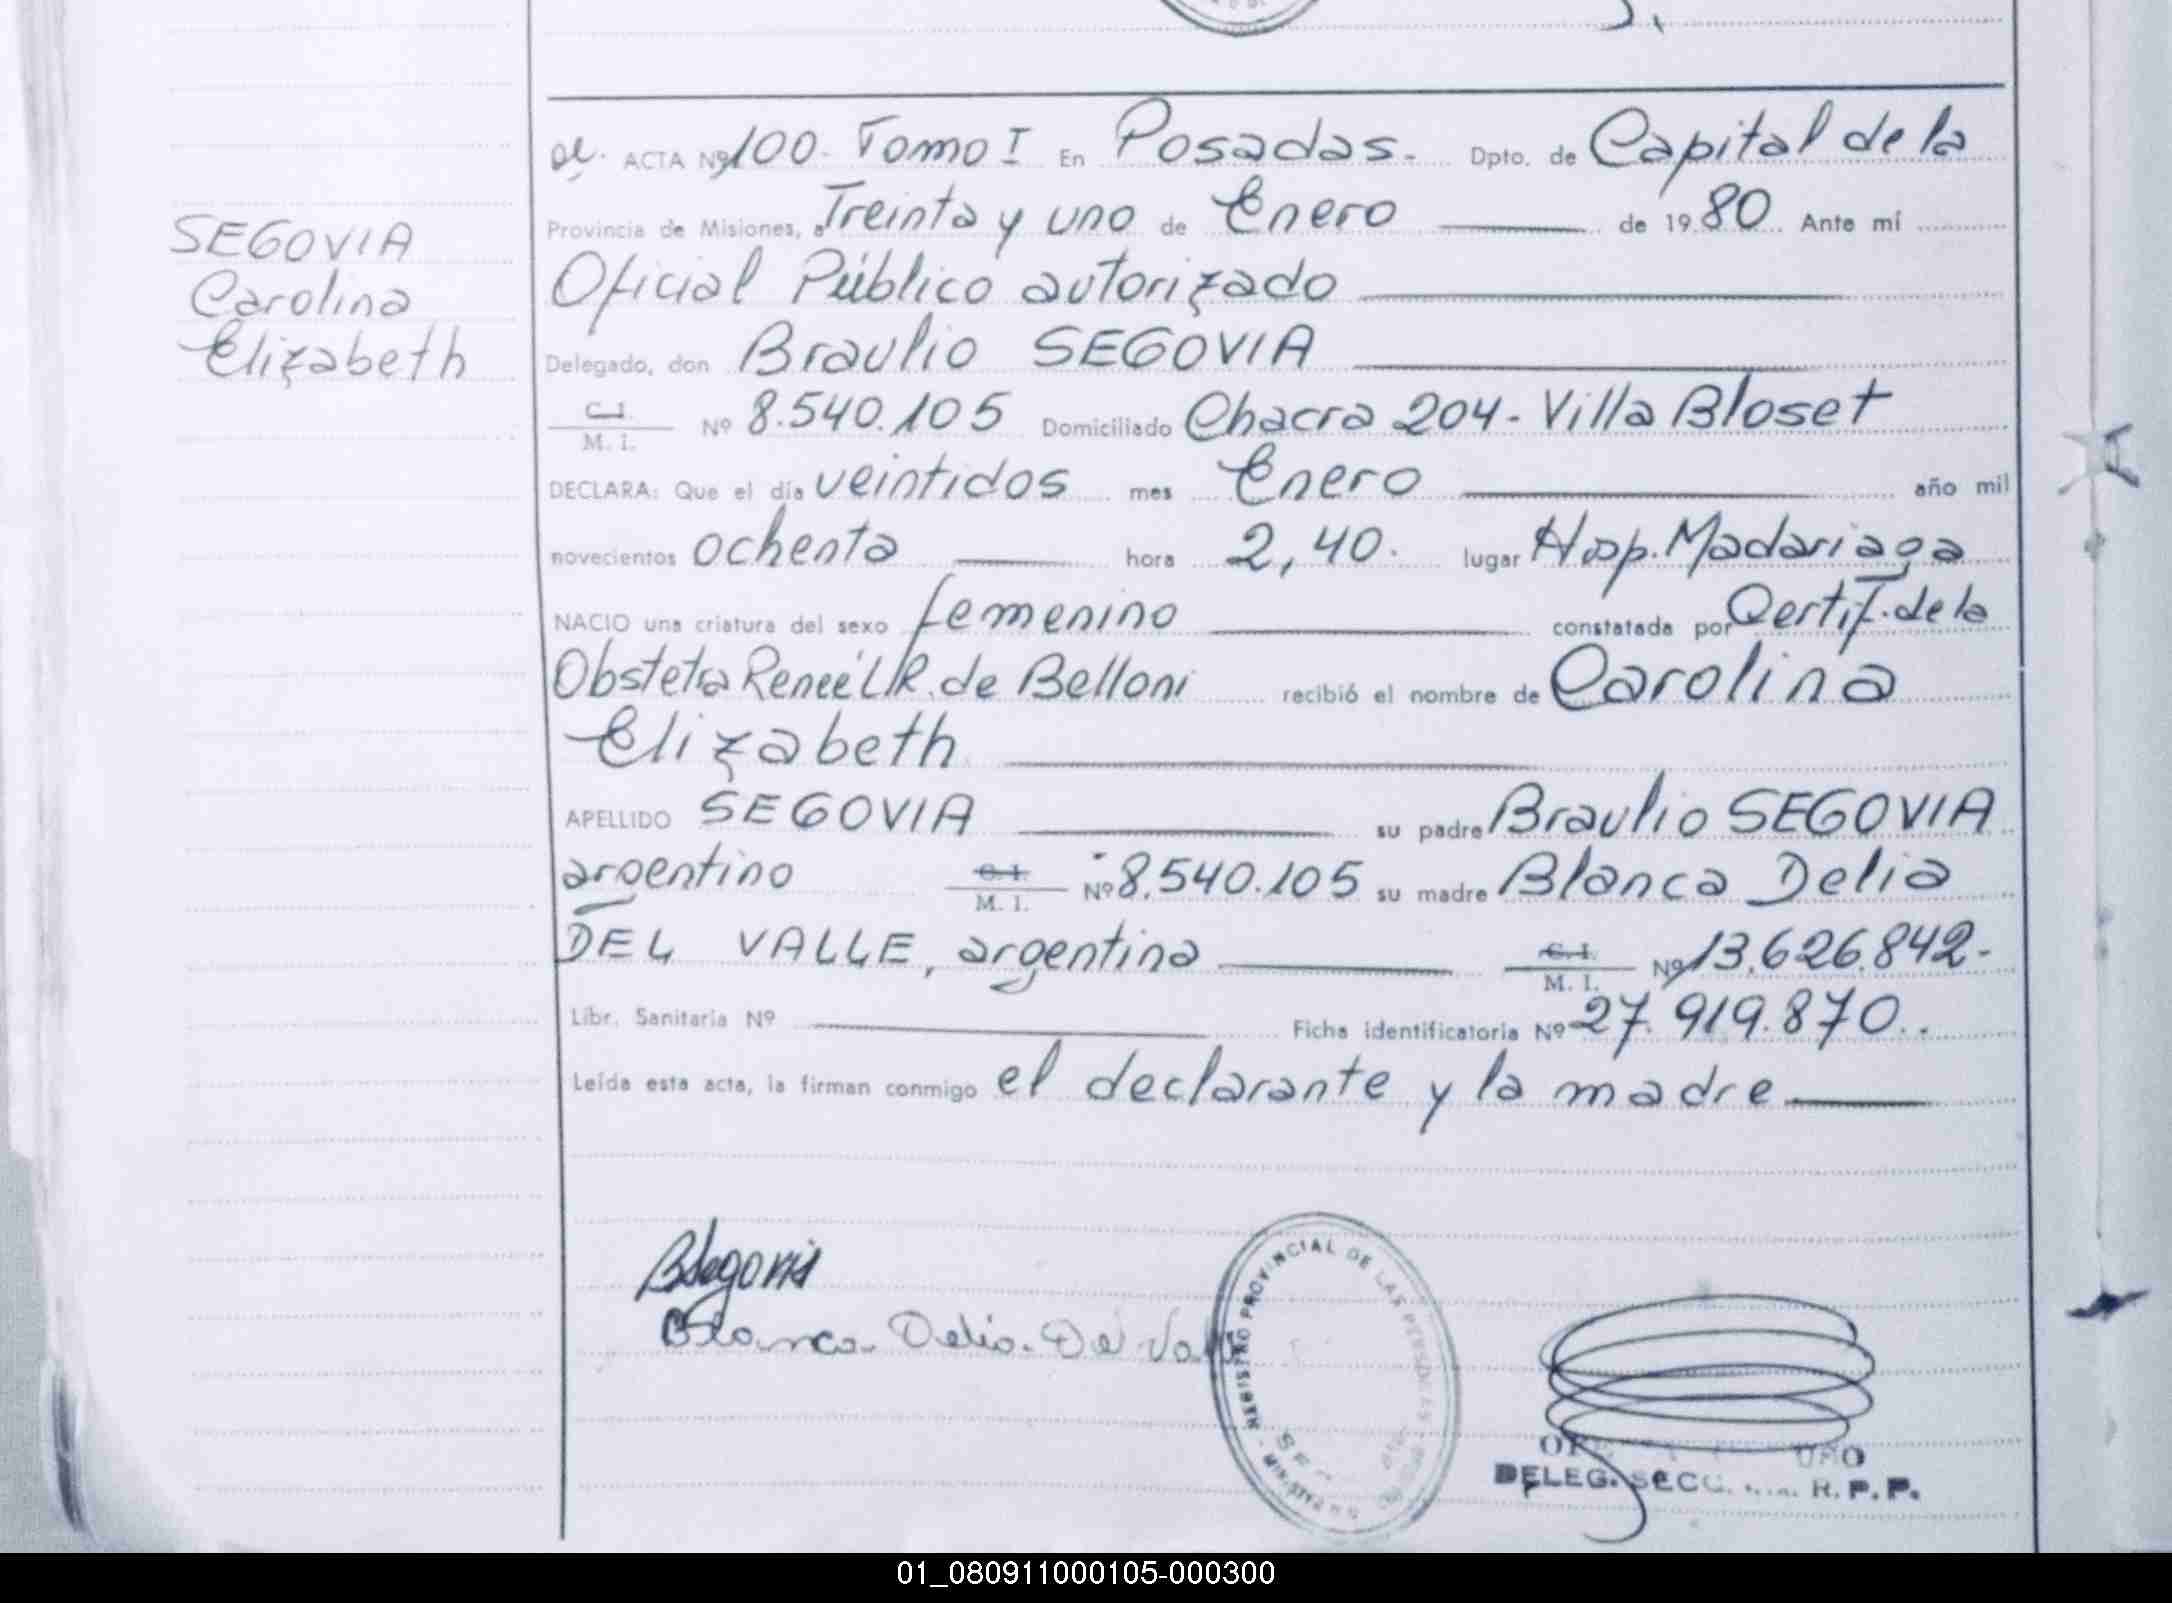 ACTA Nº 100. Tomo I En Posadas. Dpto. de Capital de la
Provincia de Misiones, a Treinta y uno de Enero de 1980 Ante mí
Oficial Público autorizado
Delegado, don Braulio SEGOVIA
C. I.
M. I. Nº 8.540.105 Domiciliado Chacra 204 - Villa Bloset
DECLARA: Que el día veintidos mes Enero año mil
novecientos ochenta hora 2,40. lugar Hosp. Madariaga
NACIO una criatura del sexo femenino constatada por Certif. de la
Obstetra Reneé L R. de Belloni recibió el nombre de Carolina
Elizabeth
APELLIDO SEGOVIA su padre Braulio SEGOVIA
argentino C. I.
M. I. Nº 8.540.105 su madre Blanca Delia
DEL VALLE, argentina C. I.
M. I. Nº 13.626.842-
Libr. Sanitaria Nº Ficha identificatoria Nº 27.919.870.
Leída esta acta, la firman conmigo el declarante y la madre
SEGOVIA
Carolina
Elizabeth
BSegovia
Blanca Delia Del
REGISTRO PROVINCIAL DE LAS PERSONAS
DELEG. SECC. R. P. P.
01_080911000105-000300